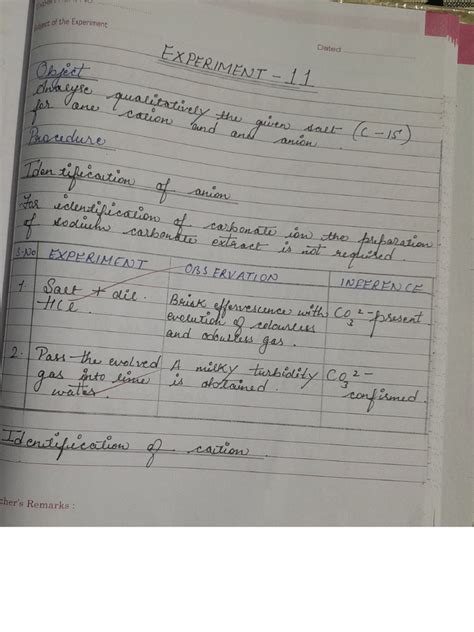 Subject of the Experiment
Dated
EXPERIMENT - 11
Object
Analyse qualitatively the given salt (C-15)
for one cation and one anion.
Procedure
Identification of anion
For identification of carbonate ion the preparation
of sodium carbonate extract is not required
S.No EXPERIMENT OBSERVATION INFERENCE
1. Salt + dil. HCl. Brisk effervescence with evolution of colourless and odourless gas. CO3 2- present
2. Pass the evolved gas into lime water. A milky turbidity is obtained. CO3 2- confirmed
Identification of cation
cher's Remarks :